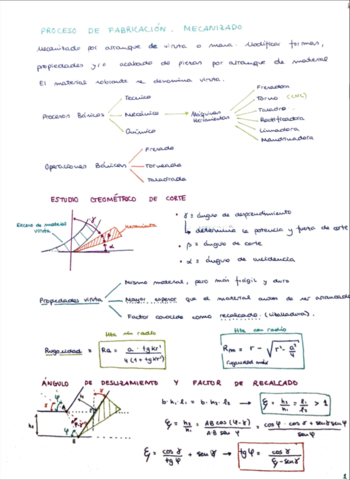 PROCESO DE FABRICACIÓN. MECANIZADO
Mecanizado por arranque de viruta o masa. Modificar formas,
propiedades y/o acabado de piezas por arranque de material
El material sobrante se denomina viruta.
Procesos Básicos
Técnico
Mecánico
Químico
Máquinas herramientas
Fresadora
Torno (CNC)
Taladro
Rectificadora
Limadora
Mandrinadora
Operaciones Básicas
Fresado
Torneado
Taladrado
ESTUDIO GEOMÉTRICO DE CORTE
Exceso de material
viruta
Herramienta
γ
β
α
• γ = ángulo de desprendimiento
determina la potencia y fuerza de corte
• β = ángulo de corte
• α = ángulo de incidencia
Propiedades viruta
Mismo material, pero más frágil y duro
Mayor espesor que el material antes de ser arrancado
Factor conocido como recalcado.
Hta sin radio
Rugosidad = Ra =
Hta con radio
ÁNGULO DE DESLIZAMIENTO Y FACTOR DE RECALCADO
b · h₁ · l₁ = b · h₂ · l₂
ξ = h₂/h₁ = l₁/l₂ > 1
ξ = h₂/h₁ = AB cos(φ-γ) / AB sen φ = cosφ · cosγ + senγ senφ / senφ
ξ = cosγ / tgφ + senγ → tgφ = cosγ / ξ - senγ
1